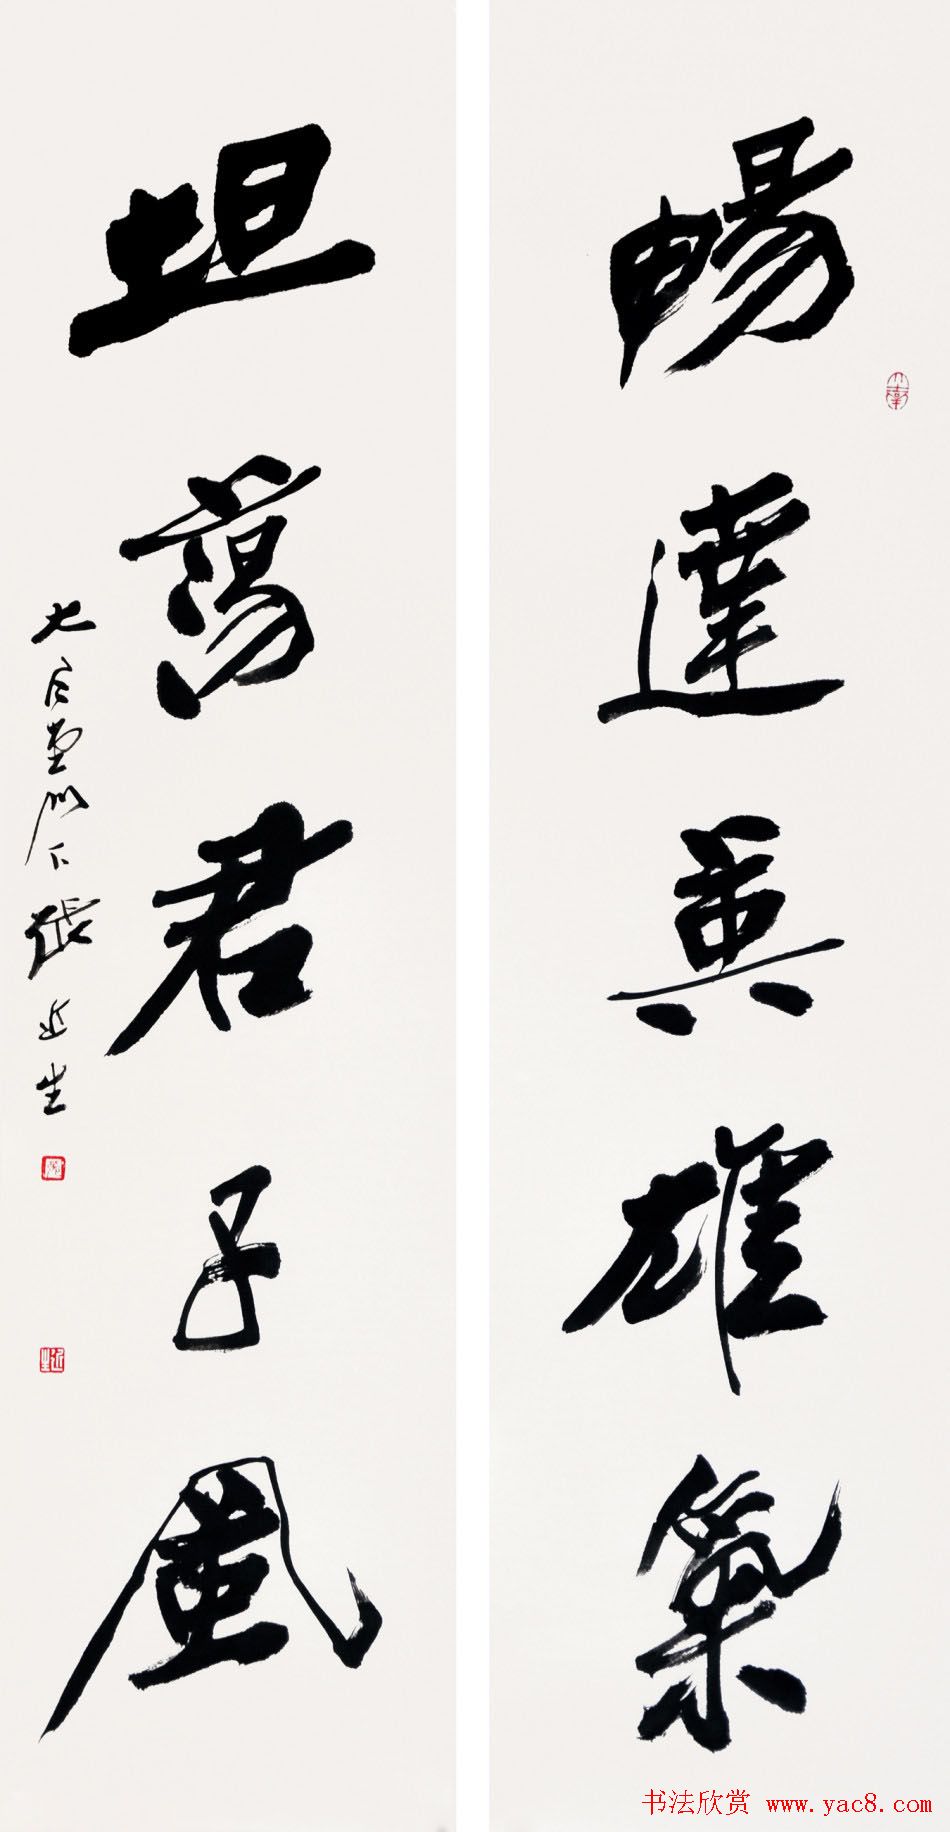 暢達真雄氣
坦蕩君子風
大風堂門下張近生
书法欣赏 www.yac8.com